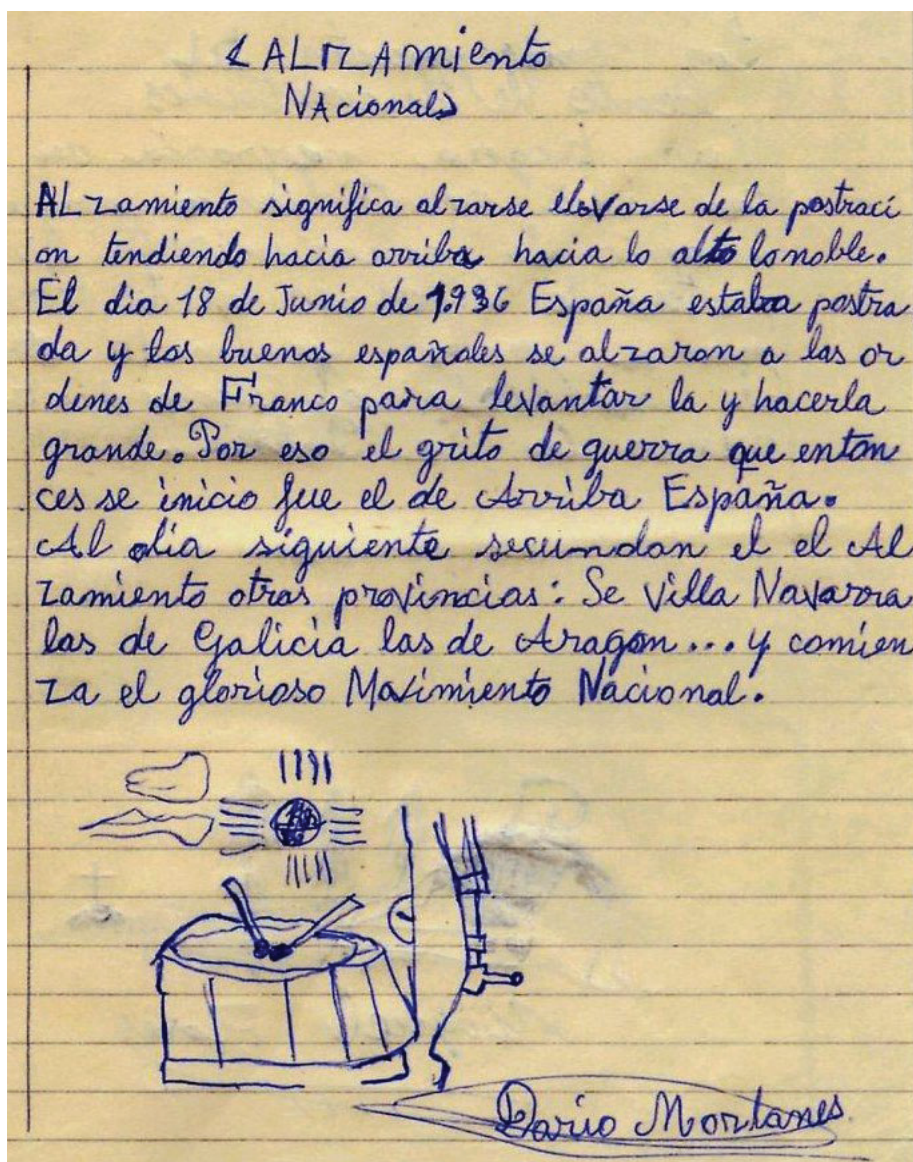 «ALZAmiento
NAcional»
ALzamiento significa alzarse elevarse de la postraci
on tendiendo hacia arriba hacia lo alto lo noble.
El dia 18 de Junio de 1.936 España estaba postra
da y los buenos españoles se alzaron a las or
denes de Franco para levantar la y hacerla
grande. Por eso el grito de guerra que enton
ces se inicio fue el de Arriba España.
Al dia siguiente secundan el el Al
zamiento otras provincias: Se villa Navarra
las de Galicia las de Aragon... y comien
za el glorioso Movimiento Nacional.
Dario Montanes